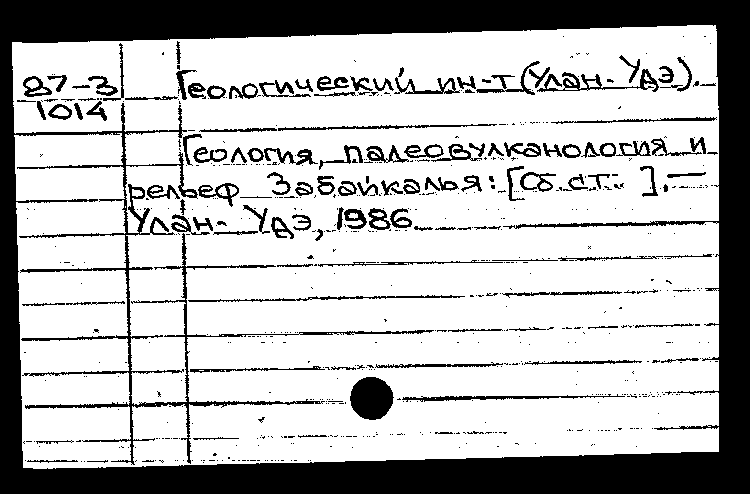 87-3 Геологический ин-т (Улан-Удэ).
1014
Геология, палеовулканология и
рельеф Забайкалья: [Сб. ст.: ]. —
Улан-Удэ, 1986.